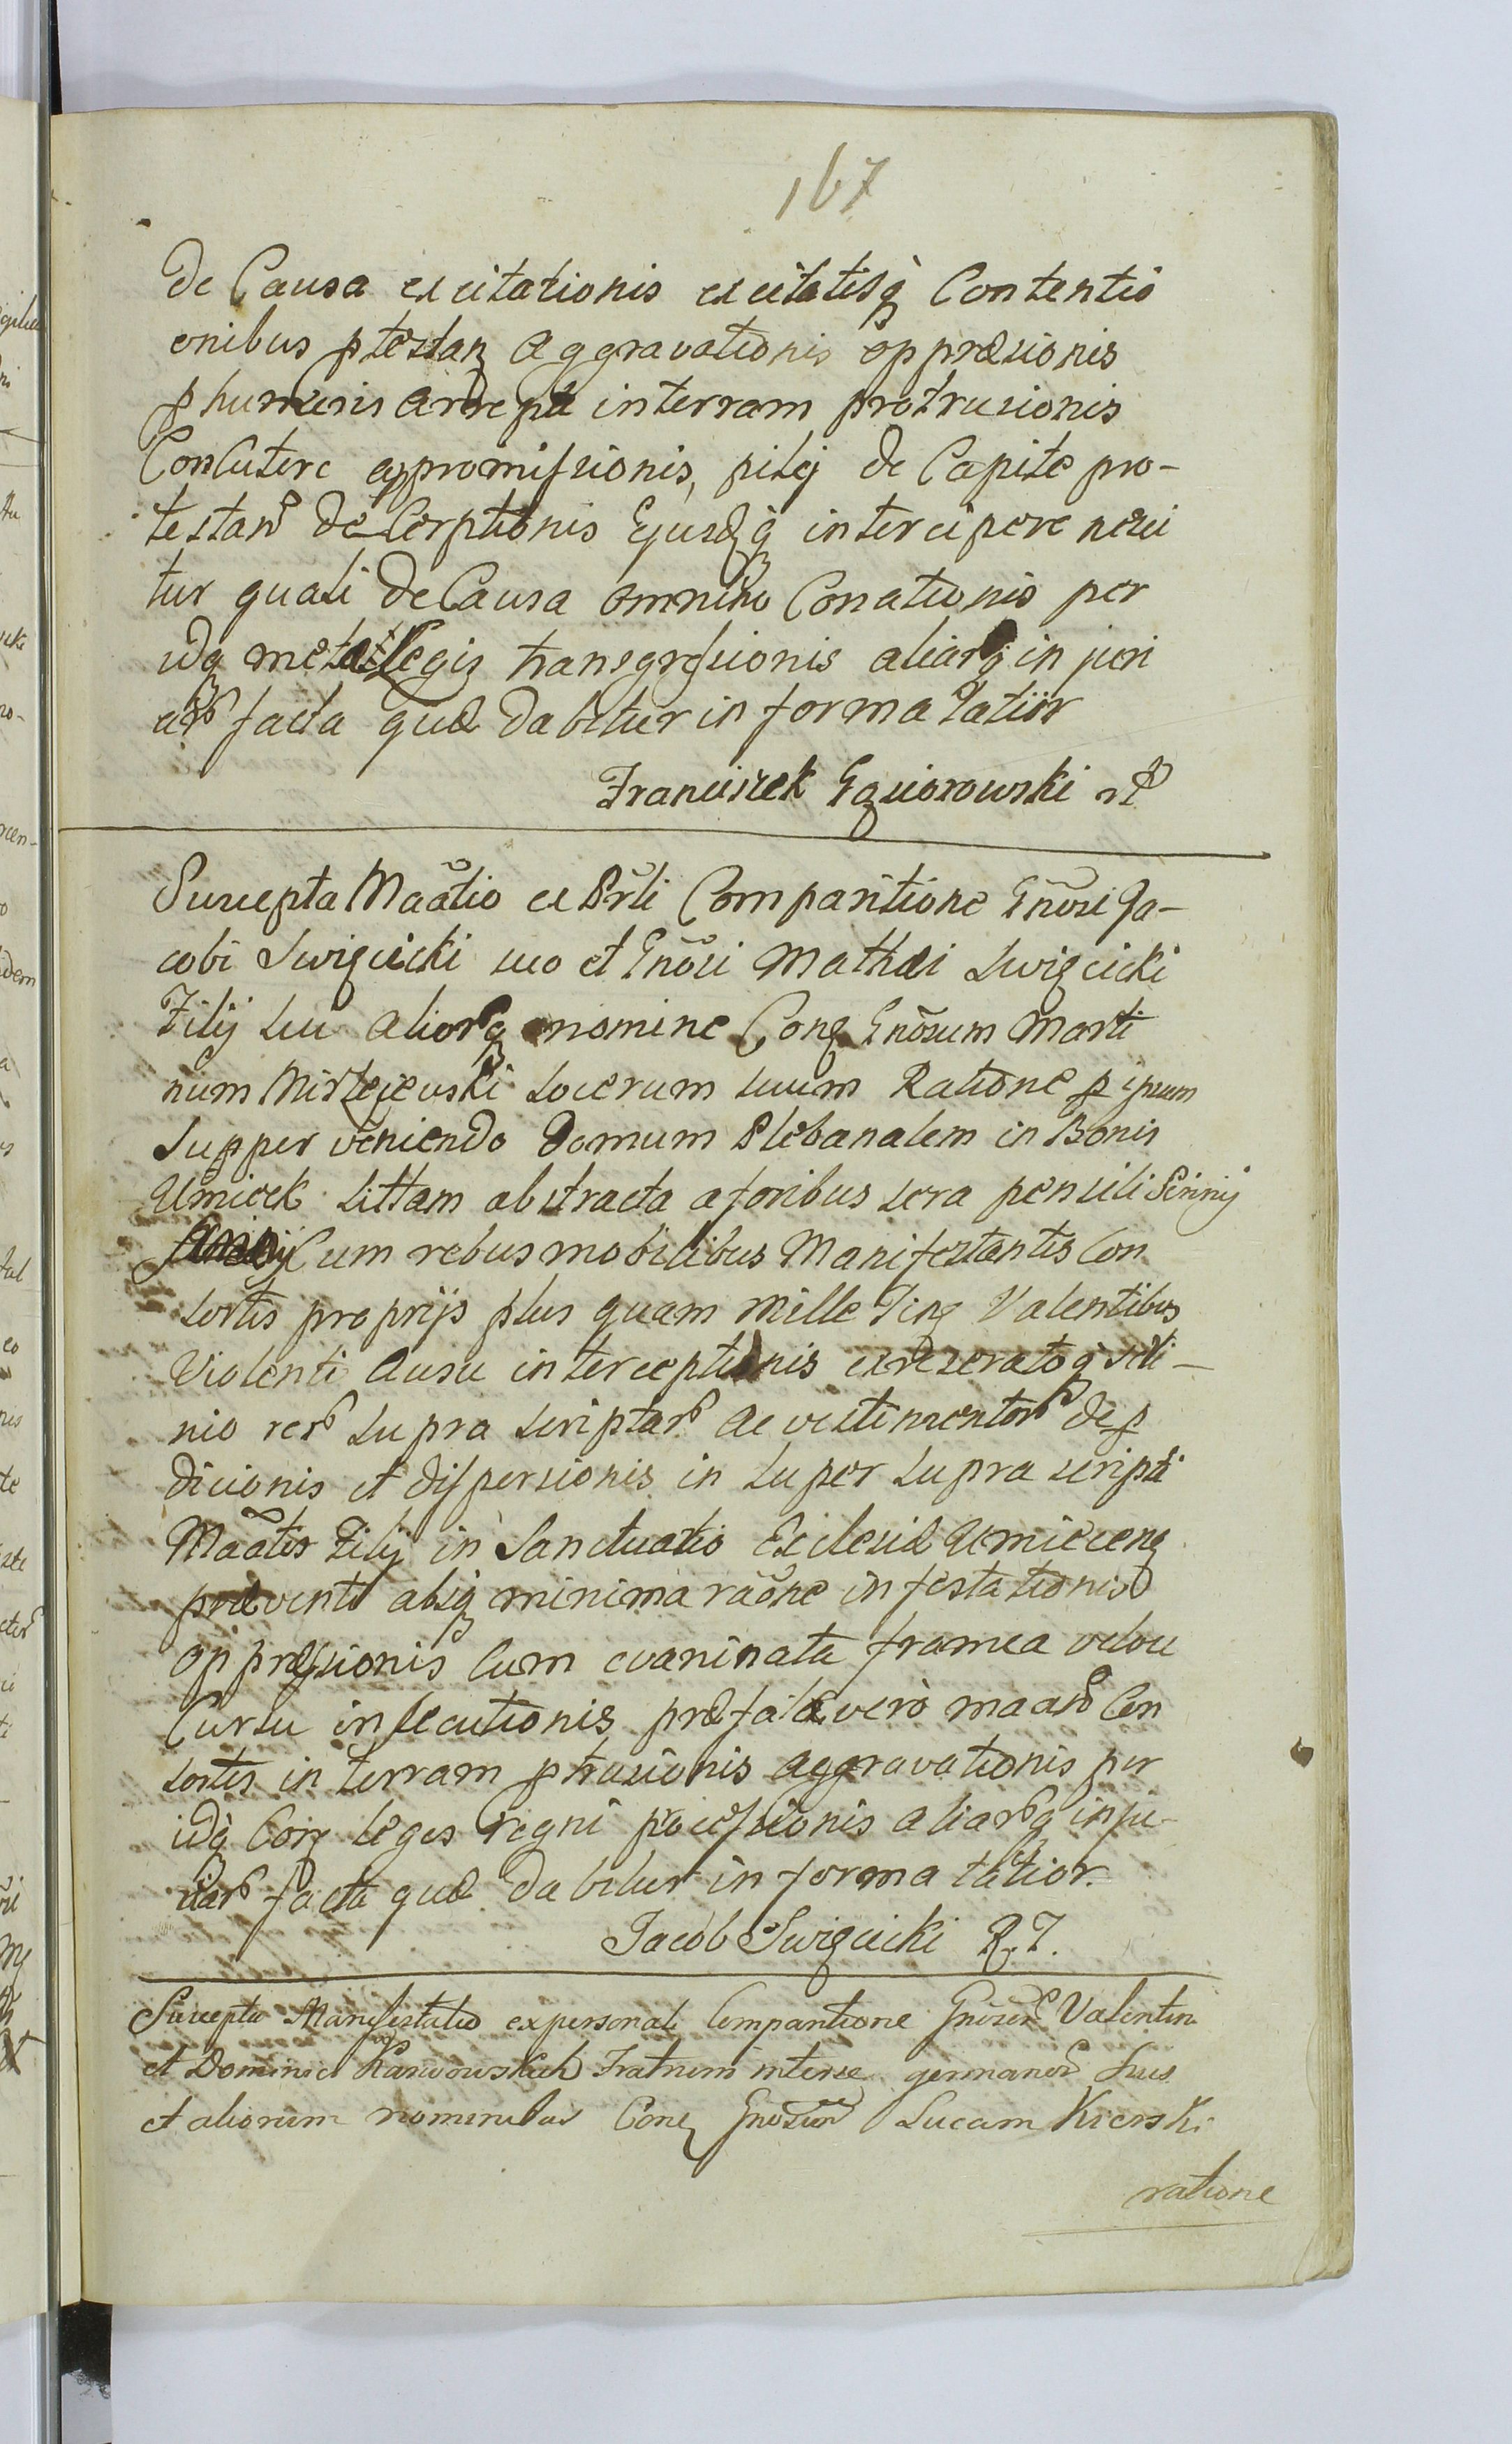 167
de Causa excitationis excitatisq̀ Contentio
onibus ptestanꝫ Aggravationis oppræsionis
p humeris arrepti in terram protrusionis
Conlutere appromissionis, pilej de Capite pro-
testanᵈ de Cerptionis Ejusdꝫq̀ intercipere nesci
tur quali de Causa omnino Conationis per
idq̀ metas Legis transgressionis aliarq̀ in juri
arᵇ facta quæ dabitur in forma latiori
Franciszek Gąsiorowski
Suscepta Maãtio ex Prli Comparitione Gnõsi Ja-
cobi Swięcicki suo et Gnõsi Mathæi Swięcicki
Filij sui aliorq̀ nomine Conꝫ Gnõsum Marti
num Mirzejewski Socerum suum Ratione p ipsum
Supper veniendo Domum Plebanalem in Bonis
Umieck sittam abstracta a foribus sera pensili Scrinij
Cum rebus mobilibus Manifestantis Con
sortis proprijs plus quam mille Tinꝫ Valentibus
Violenti Ausu interceptionis exreseratoq̀ scri-
nio rerᵇ Supra scriptarᵇ ac vestimentorᵇ dep
dicionis et dispersionis in super supra scripti
Maãtis Filij in Sanctuario Ecclesiæ Umiecenꝫ
præventi absq̀ minima raõne infestationis
oppressionis Cum evaninata framea veloci
Cursu insecutionis præfatæ verò maanᵈ Con
sortis in terram ptrusionis Aggravationis per
idq̀ Conꝫ leges Regni processionis aliarᵇq̀ inju-
riarᵇ facta quæ dabitur in forma latiori.
Jacob Swięcicki R.T.
Suscepta Manifestatio ex personali Comparitione Gnosorᵈ Valentini
et Dominici Karwowskich Fratrum inter se germanorᵈ Suis
et aliorum nominibus Conꝫ Gnosum Lucam Kierski
ratione